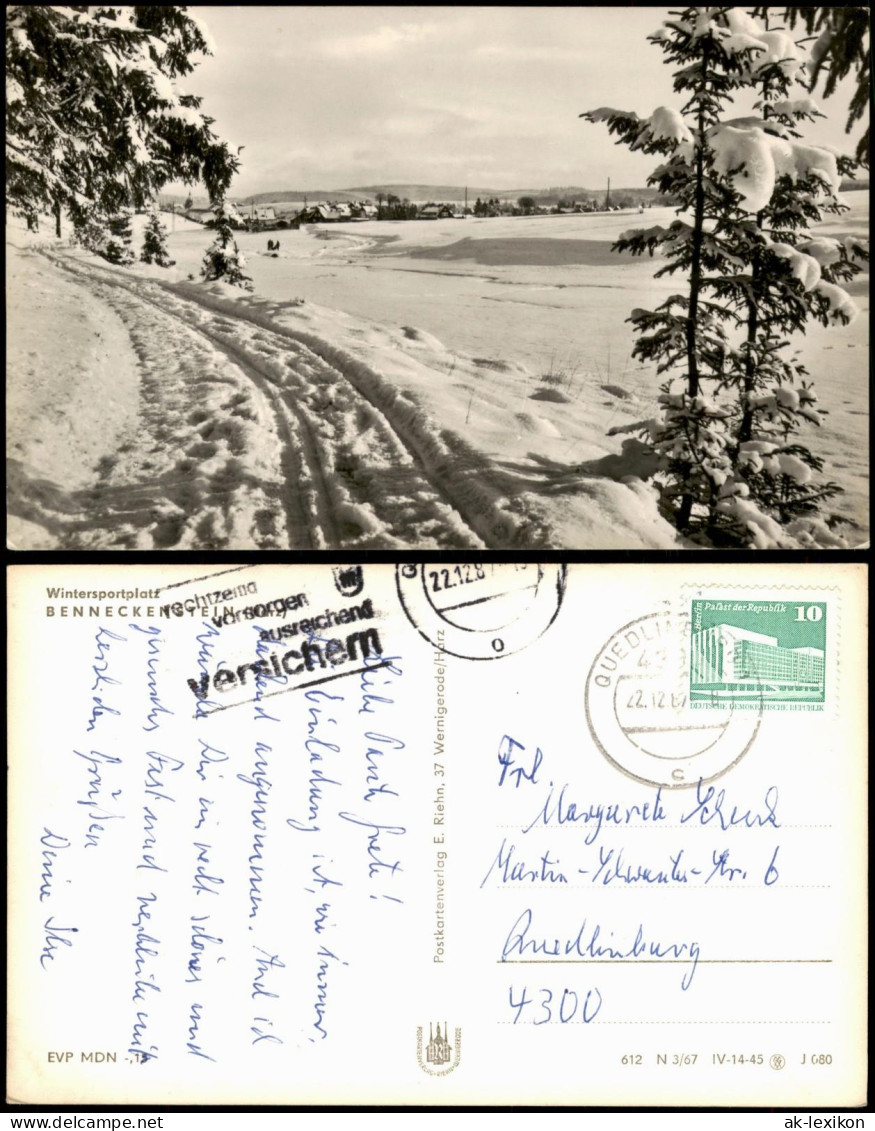 Wintersportplatz
BENNECKENSTEIN
rechtzeitig
vorsorgen
ausreichend
versichern
22.12.8
QUEDLINBURG
22.12.87
c
Berlin Palast der Republik 10
DEUTSCHE DEMOKRATISCHE REPUBLIK
Liebe Tante Grete!
Einladung ist, wie immer,
dankend angenommen. Auch ich
wünsche Dir ein recht schönes und
gesundes Fest und verbleibe mit
herzlichen Grüßen
Deine Ilse
Postkartenverlag E. Riehn, 37 Wernigerode/Harz
Frl.
Margarete Schenk
Martin-Schwantes-Str. 6
Quedlinburg
4300
EVP MDN -,15
612 N 3/67 IV-14-45 J 080
ak-lexikon